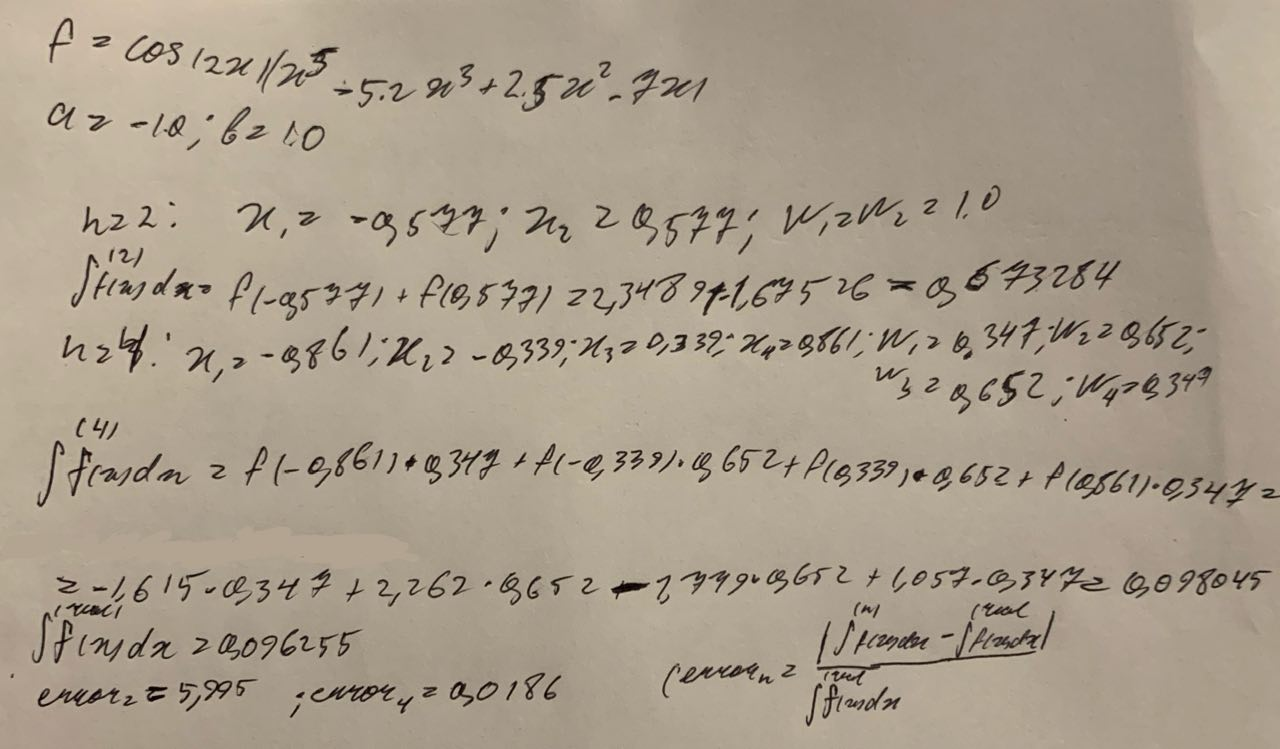 f = cos(2x)(x^5 - 5.2x^3 + 2.5x^2 - 7x)
a = -1.0; b = 1.0
n=2: x₁ = -0,577; x₂ = 0,577; W₁=W₂ = 1.0
∫^(2) f(x)dx = f(-0,577) + f(0,577) = 2,3489 + -1,67526 = 0,673284
n=4: x₁ = -0,861; x₂ = -0,339; x₃ = 0,339; x₄ = 0,861; W₁ = 0,347; W₂ = 0,652;
W₃ = 0,652; W₄ = 0,347
∫^(4) f(x)dx = f(-0,861)·0,347 + f(-0,339)·0,652 + f(0,339)·0,652 + f(0,861)·0,347 =
= -1,615·0,347 + 2,262·0,652 - 1,779·0,652 + 1,057·0,347 = 0,098045
∫^(real) f(x)dx = 0,096255
error₂ = 5,995 ; error₄ = 0,0186 (errorₙ = |∫^(n) f(x)dx - ∫^(real) f(x)dx| / ∫^(real) f(x)dx